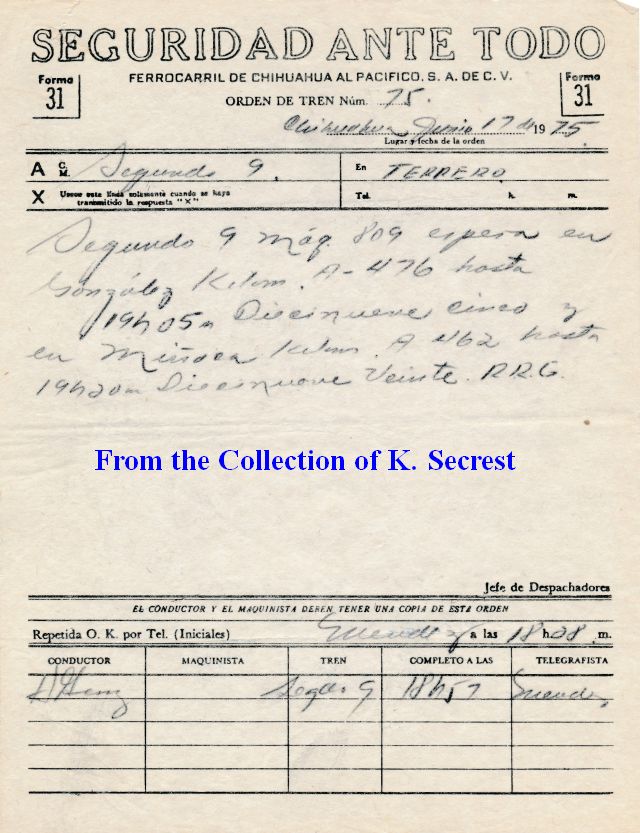 SEGURIDAD ANTE TODO
Forma 31
FERROCARRIL DE CHIHUAHUA AL PACIFICO, S. A. DE C. V.
Forma 31
ORDEN DE TREN Núm. 75.
Chihuahua Junio 17 de 1975.
Lugar y fecha de la orden
A C. M. Segundo 9. En TERRERO.
X Usese esta línea solamente cuando se haya transmitido la respuesta "X" Tel. h. m.
Segundo 9 máq. 809 espera en
González Kilom. A-476 hasta
19h05m Diecinueve cinco y
en Miñaca Kilom. A 462 hasta
19h20m Diecinueve Veinte. R.R.G.
From the Collection of K. Secrest
Jefe de Despachadores
EL CONDUCTOR Y EL MAQUINISTA DEBEN TENER UNA COPIA DE ESTA ORDEN
Repetida O. K. por Tel. (Iniciales) a las 18 h. 28 m.
CONDUCTOR MAQUINISTA TREN COMPLETO A LAS TELEGRAFISTA
Segdo 9 18h57